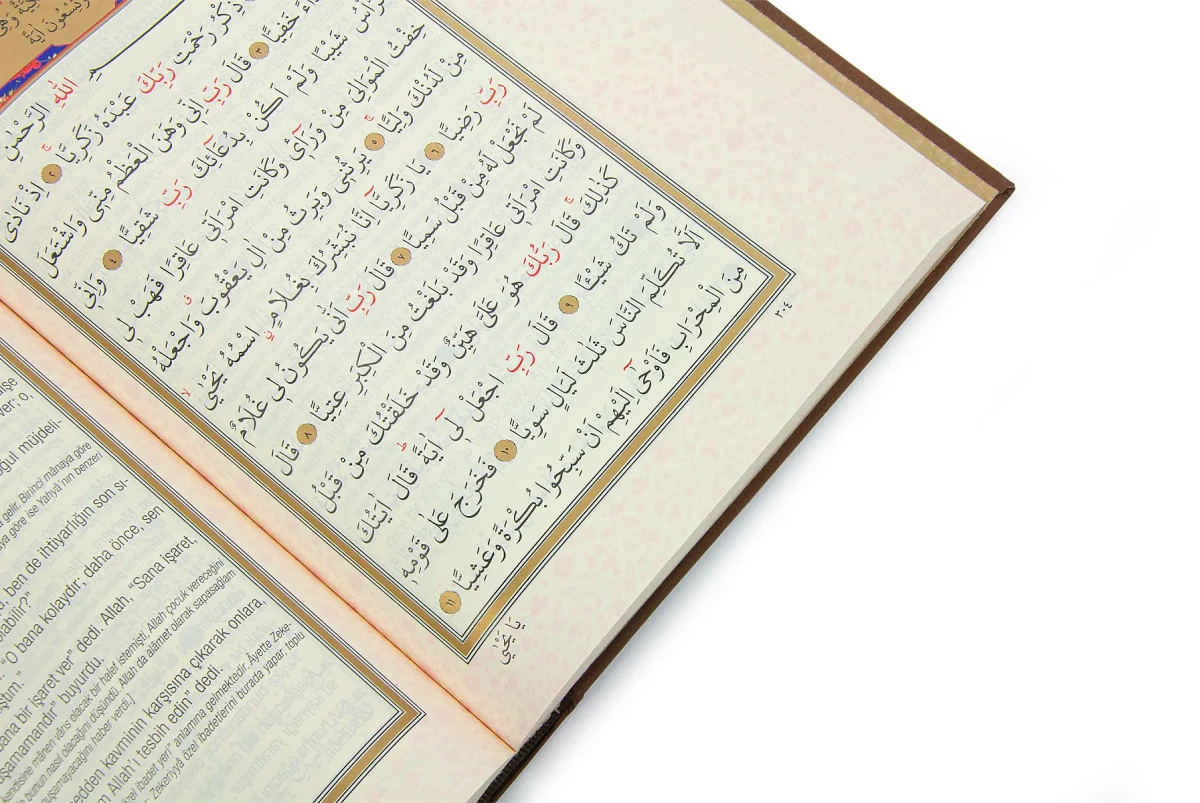 وَتِسْعُونَ اٰيَةً
اللهِ الرَّحْمٰنِ
ذِكْرُ رَحْمَتِ رَبِّكَ عَبْدَهُ زَكَرِيَّا ٢ اِذْ نَادٰى
خَفِيًّا ٣ قَالَ رَبِّ اِنّٖى وَهَنَ الْعَظْمُ مِنّٖى وَاشْتَعَلَ
شَيْبًا وَلَمْ اَكُنْ بِدُعَٓائِكَ رَبِّ شَقِيًّا ٤ وَاِنّٖى
خِفْتُ الْمَوَالِىَ مِنْ وَرَٓاءٖى وَكَانَتِ امْرَاَتٖى عَاقِرًا فَهَبْ لٖى
مِنْ لَدُنْكَ وَلِيًّا ٥ يَرِثُنٖى وَيَرِثُ مِنْ اٰلِ يَعْقُوبَ وَاجْعَلْهُ
رَبِّ رَضِيًّا ٦ يَا زَكَرِيَّٓا اِنَّا نُبَشِّرُكَ بِغُلَامٍ اسْمُهُ يَحْيٰى
لَمْ نَجْعَلْ لَهُ مِنْ قَبْلُ سَمِيًّا ٧ قَالَ رَبِّ اَنّٰى يَكُونُ لٖى غُلَامٌ
وَكَانَتِ امْرَاَتٖى عَاقِرًا وَقَدْ بَلَغْتُ مِنَ الْكِبَرِ عِتِيًّا ٨ قَالَ
كَذٰلِكَ قَالَ رَبُّكَ هُوَ عَلَىَّ هَيِّنٌ وَقَدْ خَلَقْتُكَ مِنْ قَبْلُ
وَلَمْ تَكُ شَيْـًٔا ٩ قَالَ رَبِّ اجْعَلْ لٖٓى اٰيَةً قَالَ اٰيَتُكَ
اَلَّا تُكَلِّمَ النَّاسَ ثَلٰثَ لَيَالٍ سَوِيًّا ١٠ فَخَرَجَ عَلٰى قَوْمِهٖ
مِنَ الْمِحْرَابِ فَاَوْحٰٓى اِلَيْهِمْ اَنْ سَبِّحُوا بُكْرَةً وَعَشِيًّا ١١
٣٠٤
يَا يَحْيٰى
ver; o,
oğul müjdeli-
gelir. Birinci mânaya göre
göre ise Yahyâ'nın benzeri
ben de ihtiyarlığın son sı-
"O bana kolaydır; daha önce, sen
bana bir işaret ver" dedi. Allah, "Sana işaret,
buyurdu.
kendisine mânen vâris olacak bir halef istemişti, Allah çocuk vereceğini
bunun nasıl olacağını düşündü. Allah da alâmet olarak sapasağlam
haber verdi.]
kavminin karşısına çıkarak onlara,
Allah'ı tesbih edin" dedi.
özel ibadet yeri" anlamına gelmektedir. Âyette Zeke-
Zekeriyyâ özel ibadetlerini burada yapar, toplu